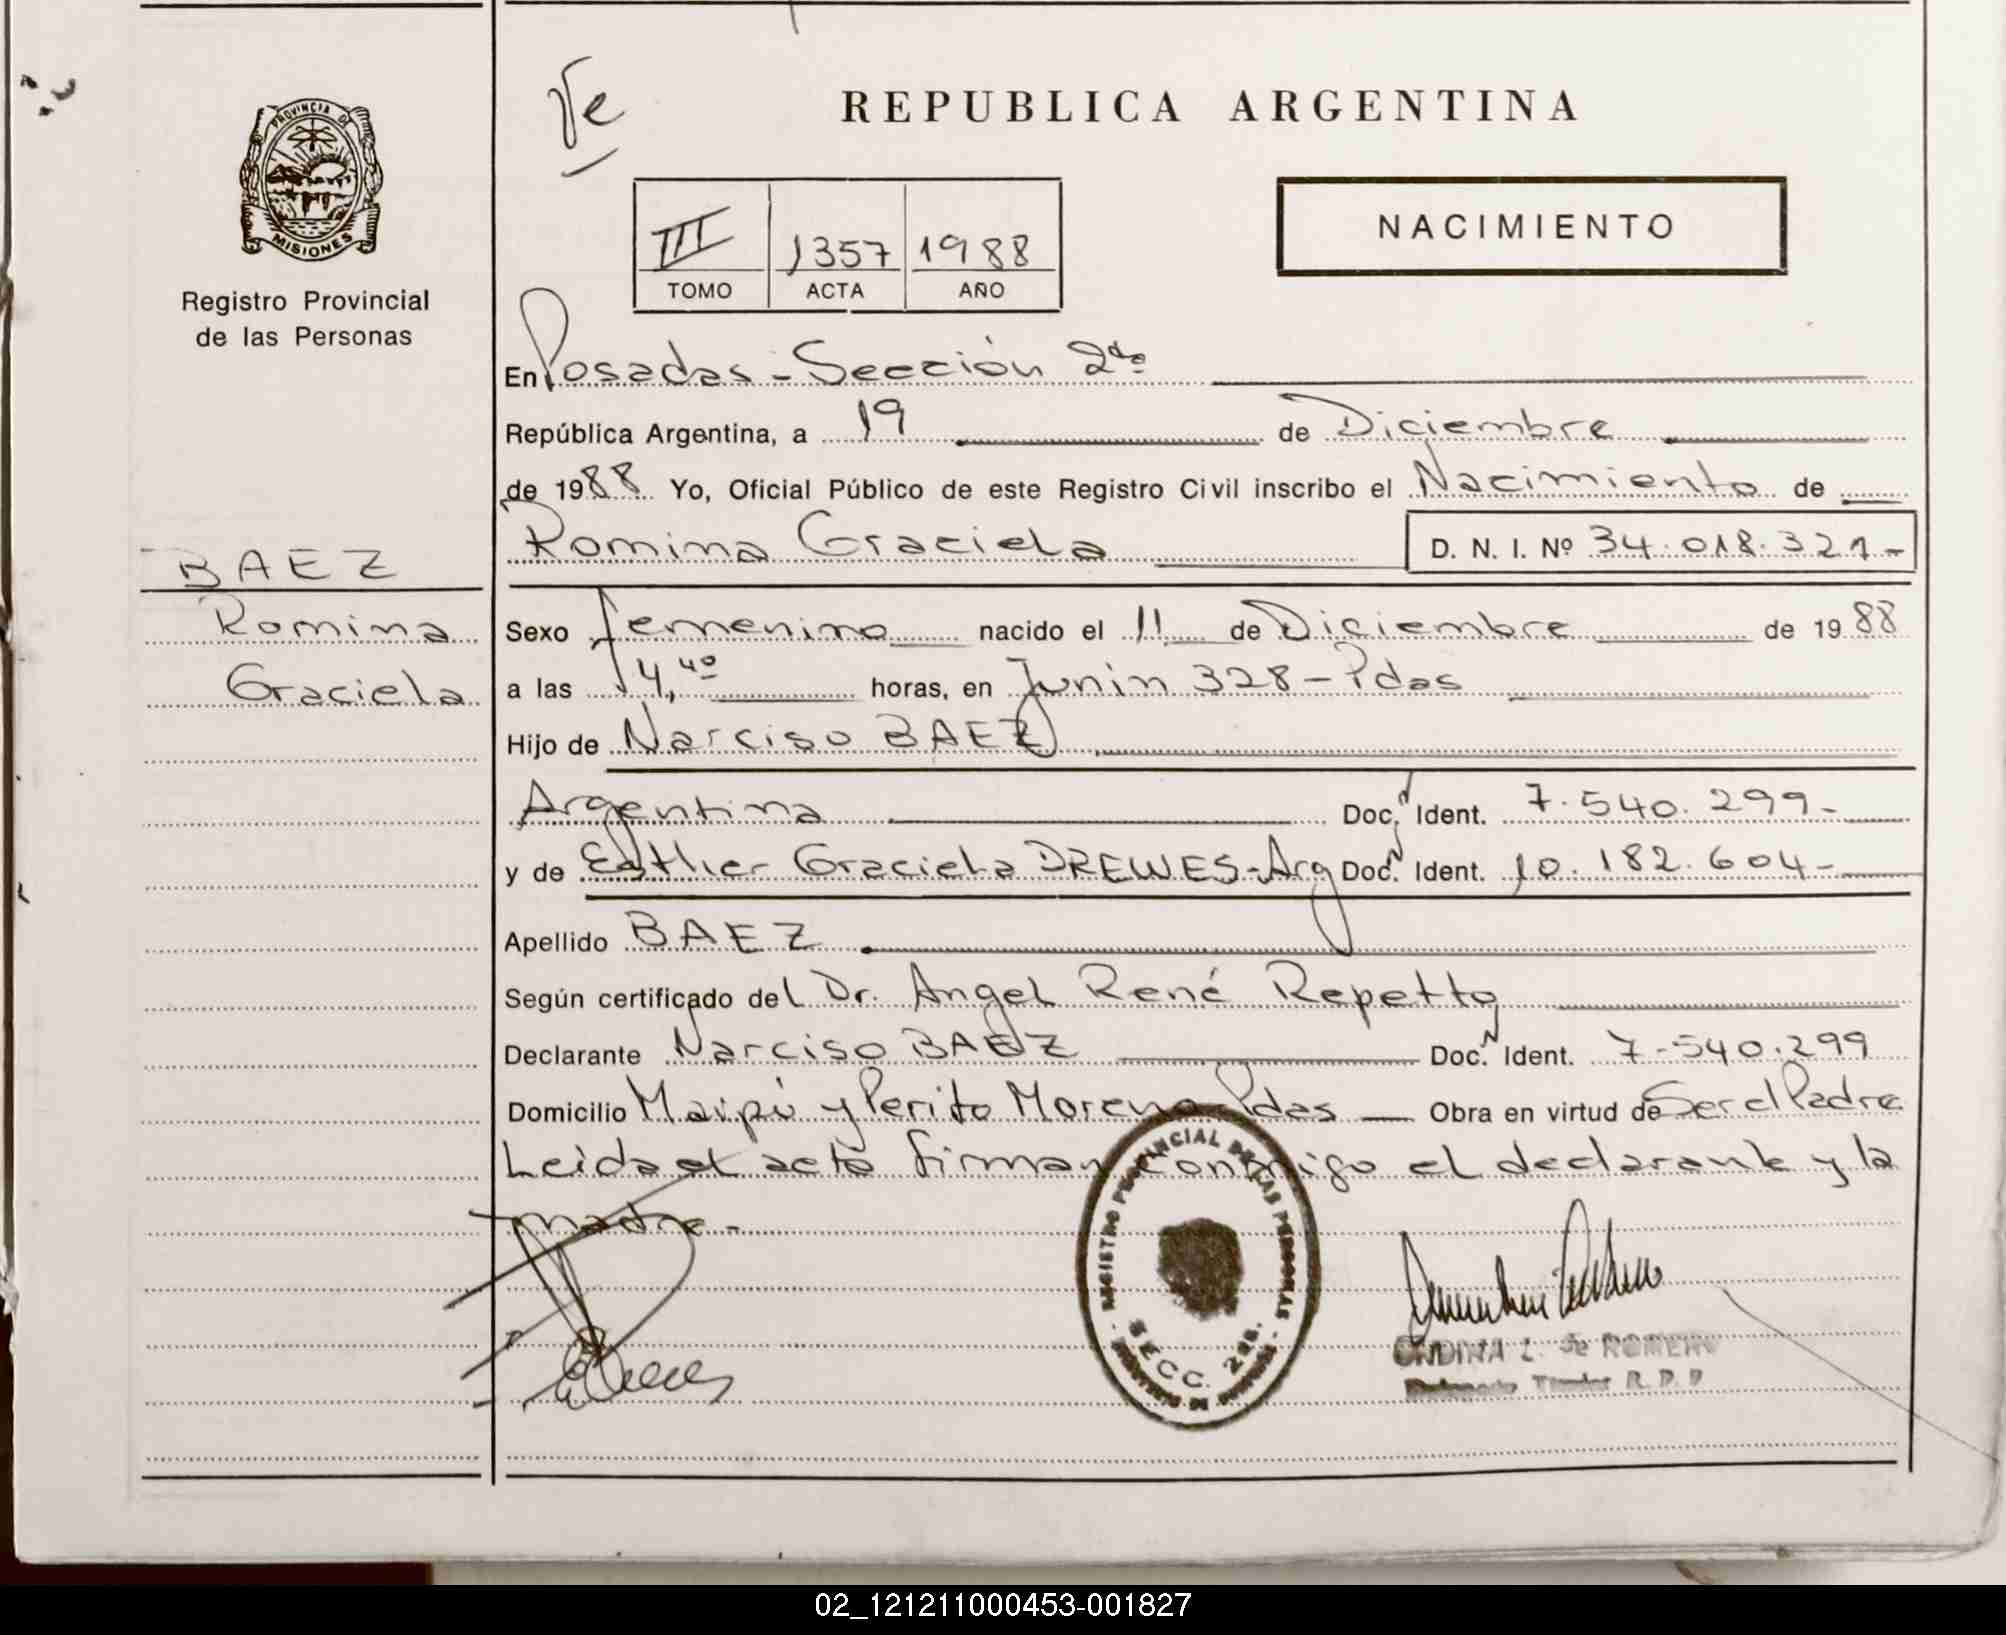 PROVINCIA DE
MISIONES
Registro Provincial
de las Personas
BAEZ
Romina
Graciela
Ve
REPUBLICA ARGENTINA
III 1357 1988
TOMO ACTA AÑO
NACIMIENTO
En Posadas - Sección 2da
República Argentina, a 19 de Diciembre
de 1988 Yo, Oficial Público de este Registro Civil inscribo el Nacimiento de
Romina Graciela D. N. I. Nº 34.018.321-
Sexo femenino nacido el 11 de Diciembre de 1988
a las 14,40 horas, en Junin 328 - Pdas
Hijo de Narciso BAEZ
Argentina Doc. Ident. 7.540.299-
y de Esther Graciela DREWES - Arg Doc. Ident. 10.182.604-
Apellido BAEZ
Según certificado del Dr. Angel René Repetto
Declarante Narciso BAEZ Doc. Ident. 7.540.299
Domicilio Maipú y Perito Moreno Pdas Obra en virtud de Ser el Padre
Leida el acta firman conmigo el declarante y la
madre.-
REGISTRO PROVINCIAL DE LAS PERSONAS
SECC. 2da.
ONDINA L. de ROMERO
Titular R. P. P
02_121211000453-001827